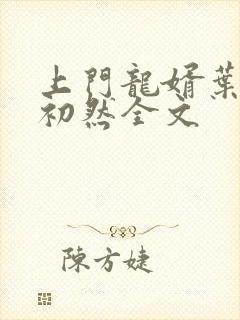 上門龍婿葉
初然全文
陳方婕